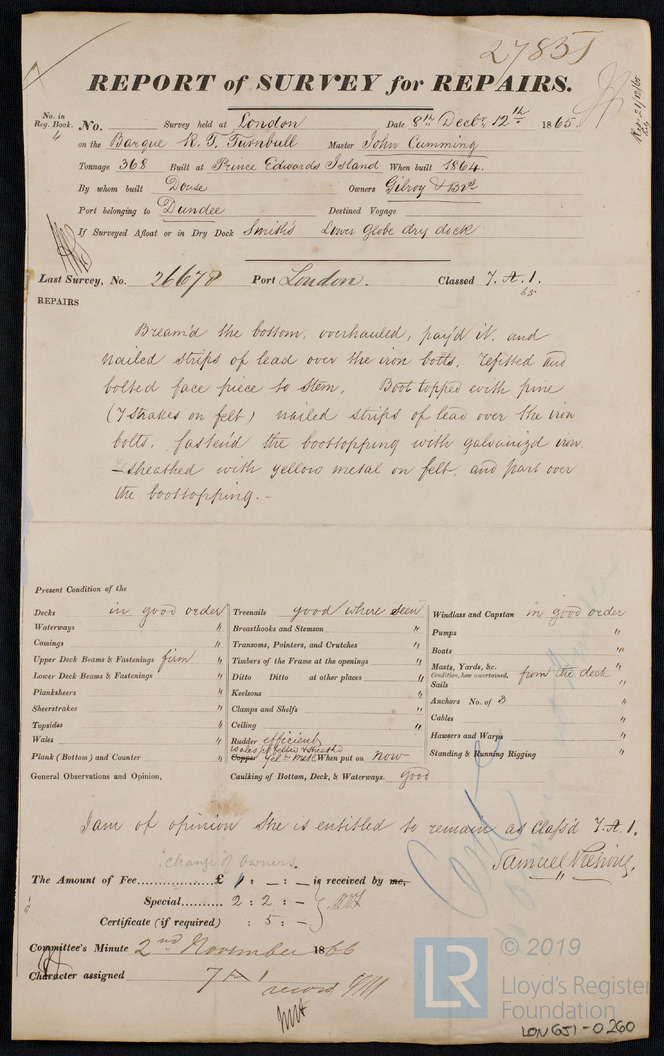 27851
REPORT of SURVEY for REPAIRS.
Rep. 21/12/65
No. in Reg. Book. No. Survey held at London Date 8th Decbr, 12th 1865.
4 on the Barque R. T. Turnbull Master John Cumming
Tonnage 368 Built at Prince Edwards Island When built 1864.
By whom built Douse Owners Gilroy & Brs
Port belonging to Dundee Destined Voyage
If Surveyed Afloat or in Dry Dock Smith's Lower Globe dry dock
Last Survey, No. 26678 Port London. Classed 7. A. 1.
65
REPAIRS
Bream'd the bottom, overhauled, pay'd it, and
nailed strips of lead over the iron bolts. Refitted and
bolted face piece to stem. Boot topped with pine
(7 strakes on felt) nailed strips of lead over the iron
bolts, fasten'd the boottopping with galvanizd iron.
– sheathed with yellow metal on felt, and part over
the boottopping. –
Present Condition of the
Decks in good order Treenails good where seen Windlass and Capstan in good order
Waterways " Breasthooks and Stemson " Pumps "
Comings " Transoms, Pointers, and Crutches " Boats "
Upper Deck Beams & Fastenings firm Timbers of the Frame at the openings " Masts, Yards, &c. Condition, how ascertained, from the deck
Lower Deck Beams & Fastenings " Ditto Ditto at other places " Sails "
Planksheers " Keelsons " Anchors No. of 3
Sheerstrakes " Clamps and Shelfs " Cables "
Topsides " Ceiling " Hawsers and Warps "
Wales " Rudder efficient Standing & Running Rigging "
Plank (Bottom) and Counter " Copper Yel. Metl When put on now
General Observations and Opinion, Caulking of Bottom, Deck, & Waterways. good
I am of opinion she is entitled to remain as Class'd 7. A. 1.
change of owners.
Samuel
The Amount of Fee £ 1 : – : – is received by me,
Special 2 : 2 : –
Certificate (if required) : 5 : –
Committee's Minute 2nd November 1866
Character assigned 7 A 1
record
LR
© 2019
Lloyd's Register
Foundation
LONGJ1-0260